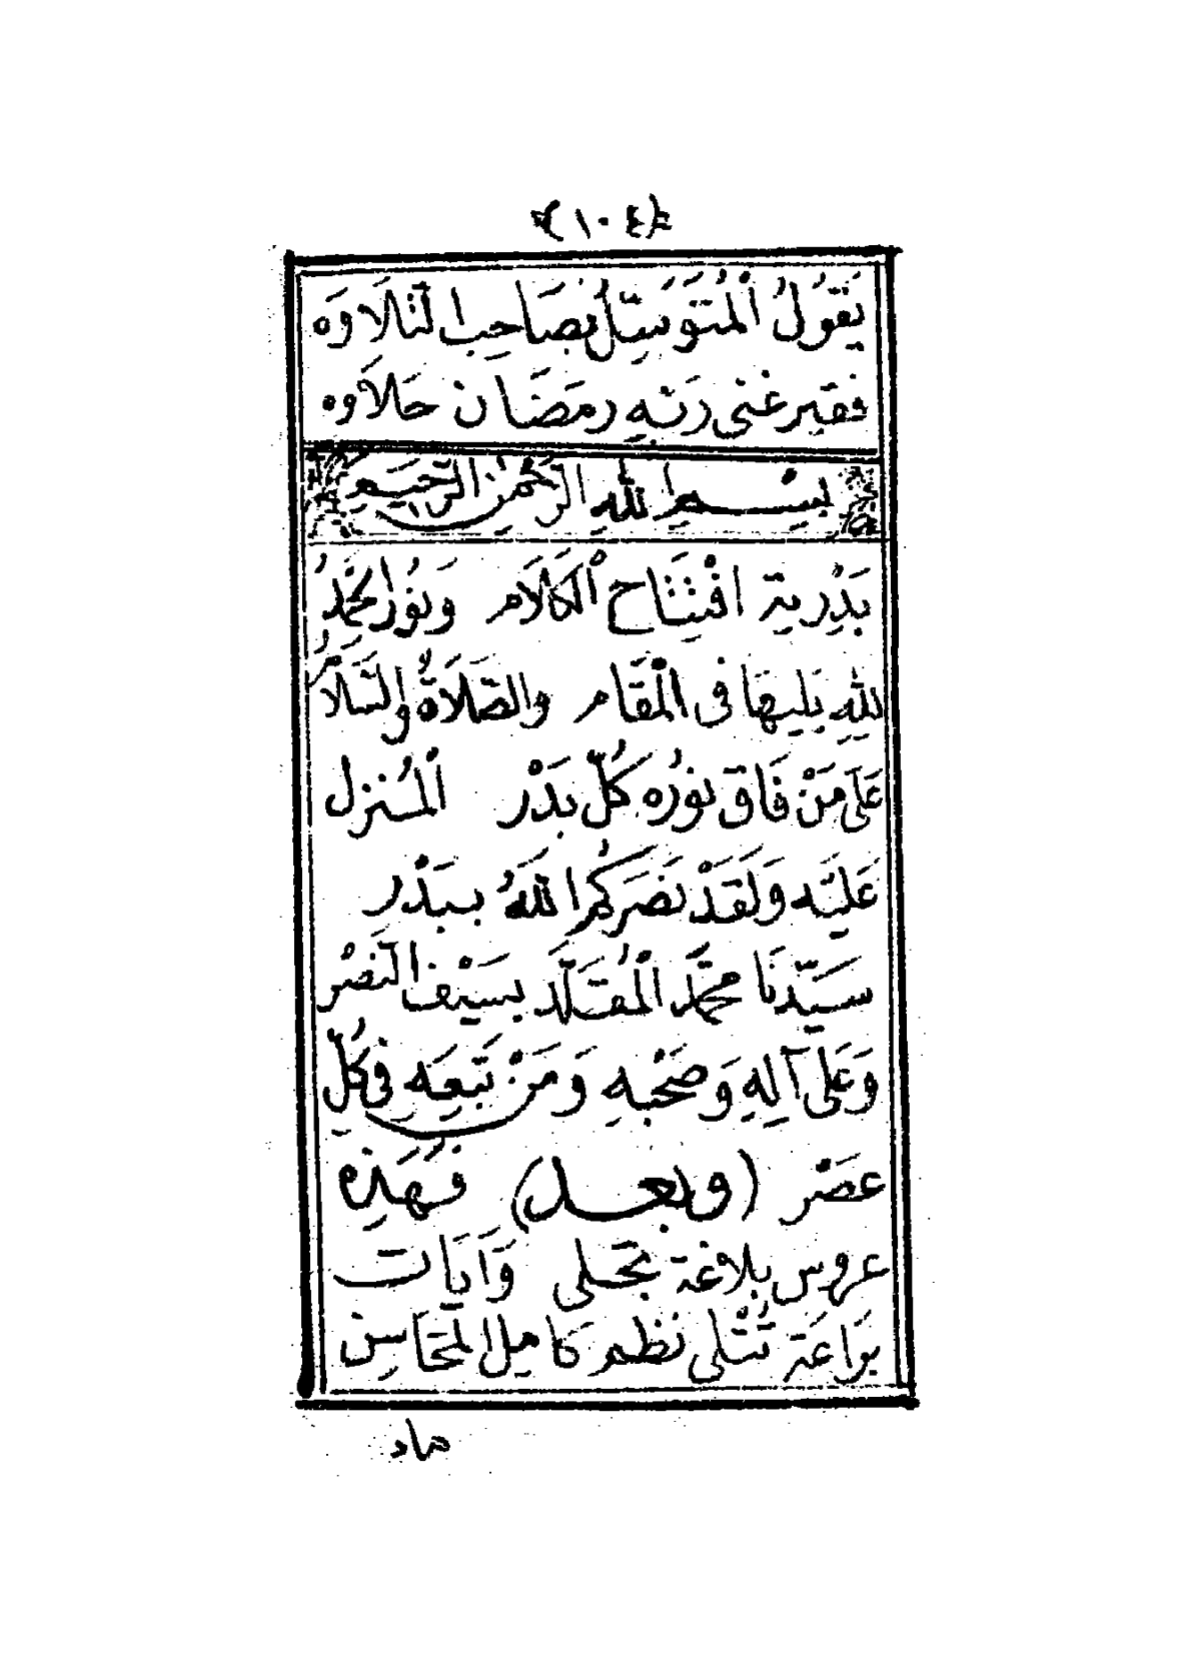 ﴿١٠٤﴾
يَقُولُ الْمُتَوَسِّلُ بِصَاحِبِ التِّلَاوَه
فقير غنى رَبِّهِ رمَضَان حَلَاوه
بِسْمِ اللَّهِ الرَّحْمٰنِ الرَّحِيمِ
بَدْرِية افْتِتَاح الْكَلَام وَنُورُ الْحَمْدُ
لِلَّهِ يَلِيهَا فى الْمَقَام والصَّلَاةُ والسَّلَامُ
عَلَى مَنْ فَاقَ نُورُه كُلَّ بَدْر الْمُنزل
عَلَيْه وَلَقَدْ نَصَرَكُمُ اللَّهُ بِبَدْر
سَيِّدنَا محمَّد الْمُقَلَّد بسَيْف النَّصْر
وَعَلَى آلِهِ وَصَحْبِهِ وَمَنْ تَبِعَه فى كُلِّ
عصْر (وبعد) فَهَذِه
عروس بلاغة تُجَلى وَآيَات
بَرَاعَة تُتْلى نظم كامل المَحَاسن